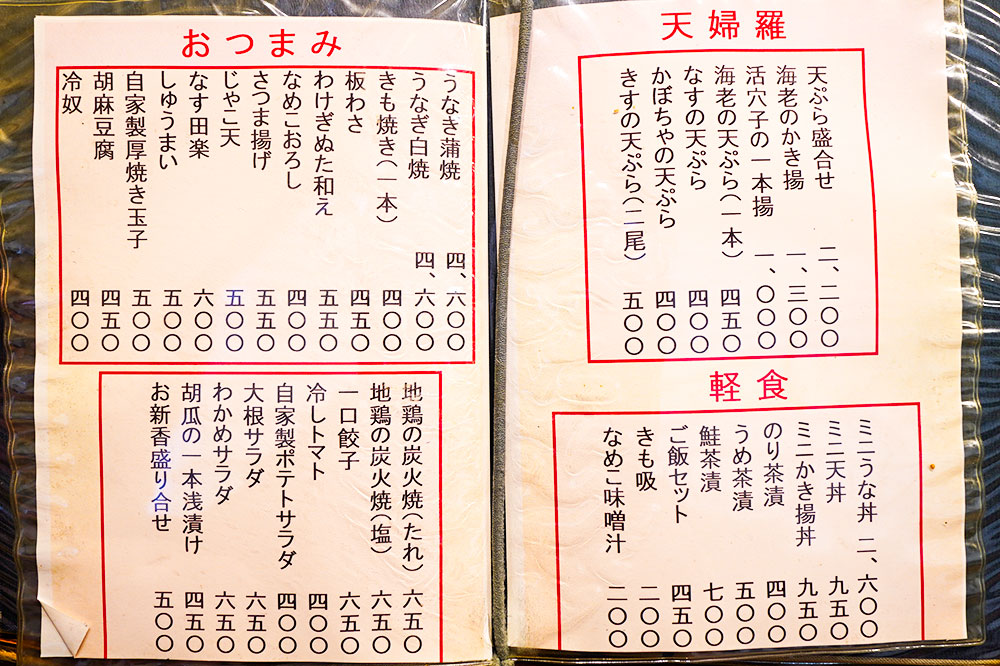 天婦羅
天ぷら盛合せ 二、二〇〇
海老のかき揚 一、三〇〇
活穴子の一本揚 一、〇〇〇
海老の天ぷら(一本) 四五〇
なすの天ぷら 四〇〇
かぼちゃの天ぷら 四〇〇
きすの天ぷら(二尾) 五〇〇
軽食
ミニうな丼 二、六〇〇
ミニ天丼 九五〇
ミニかき揚丼 九五〇
のり茶漬 四〇〇
うめ茶漬 五〇〇
鮭茶漬 七〇〇
ご飯セット 四五〇
きも吸 二〇〇
なめこ味噌汁 二〇〇
おつまみ
うなき蒲焼 四、六〇〇
うなぎ白焼 四、六〇〇
きも焼き(一本) 四〇〇
板わさ 四五〇
わけぎぬた和え 五五〇
なめこおろし 四〇〇
さつま揚げ 五五〇
じゃこ天 五〇〇
なす田楽 六〇〇
しゅうまい 五〇〇
自家製厚焼き玉子 五〇〇
胡麻豆腐 四五〇
冷奴 四〇〇
地鶏の炭火焼(たれ) 六五〇
地鶏の炭火焼(塩) 六五〇
一口餃子 六五〇
冷しトマト 四〇〇
自家製ポテトサラダ 四〇〇
大根サラダ 六五〇
わかめサラダ 六五〇
胡瓜の一本浅漬け 四五〇
お新香盛り合せ 五〇〇